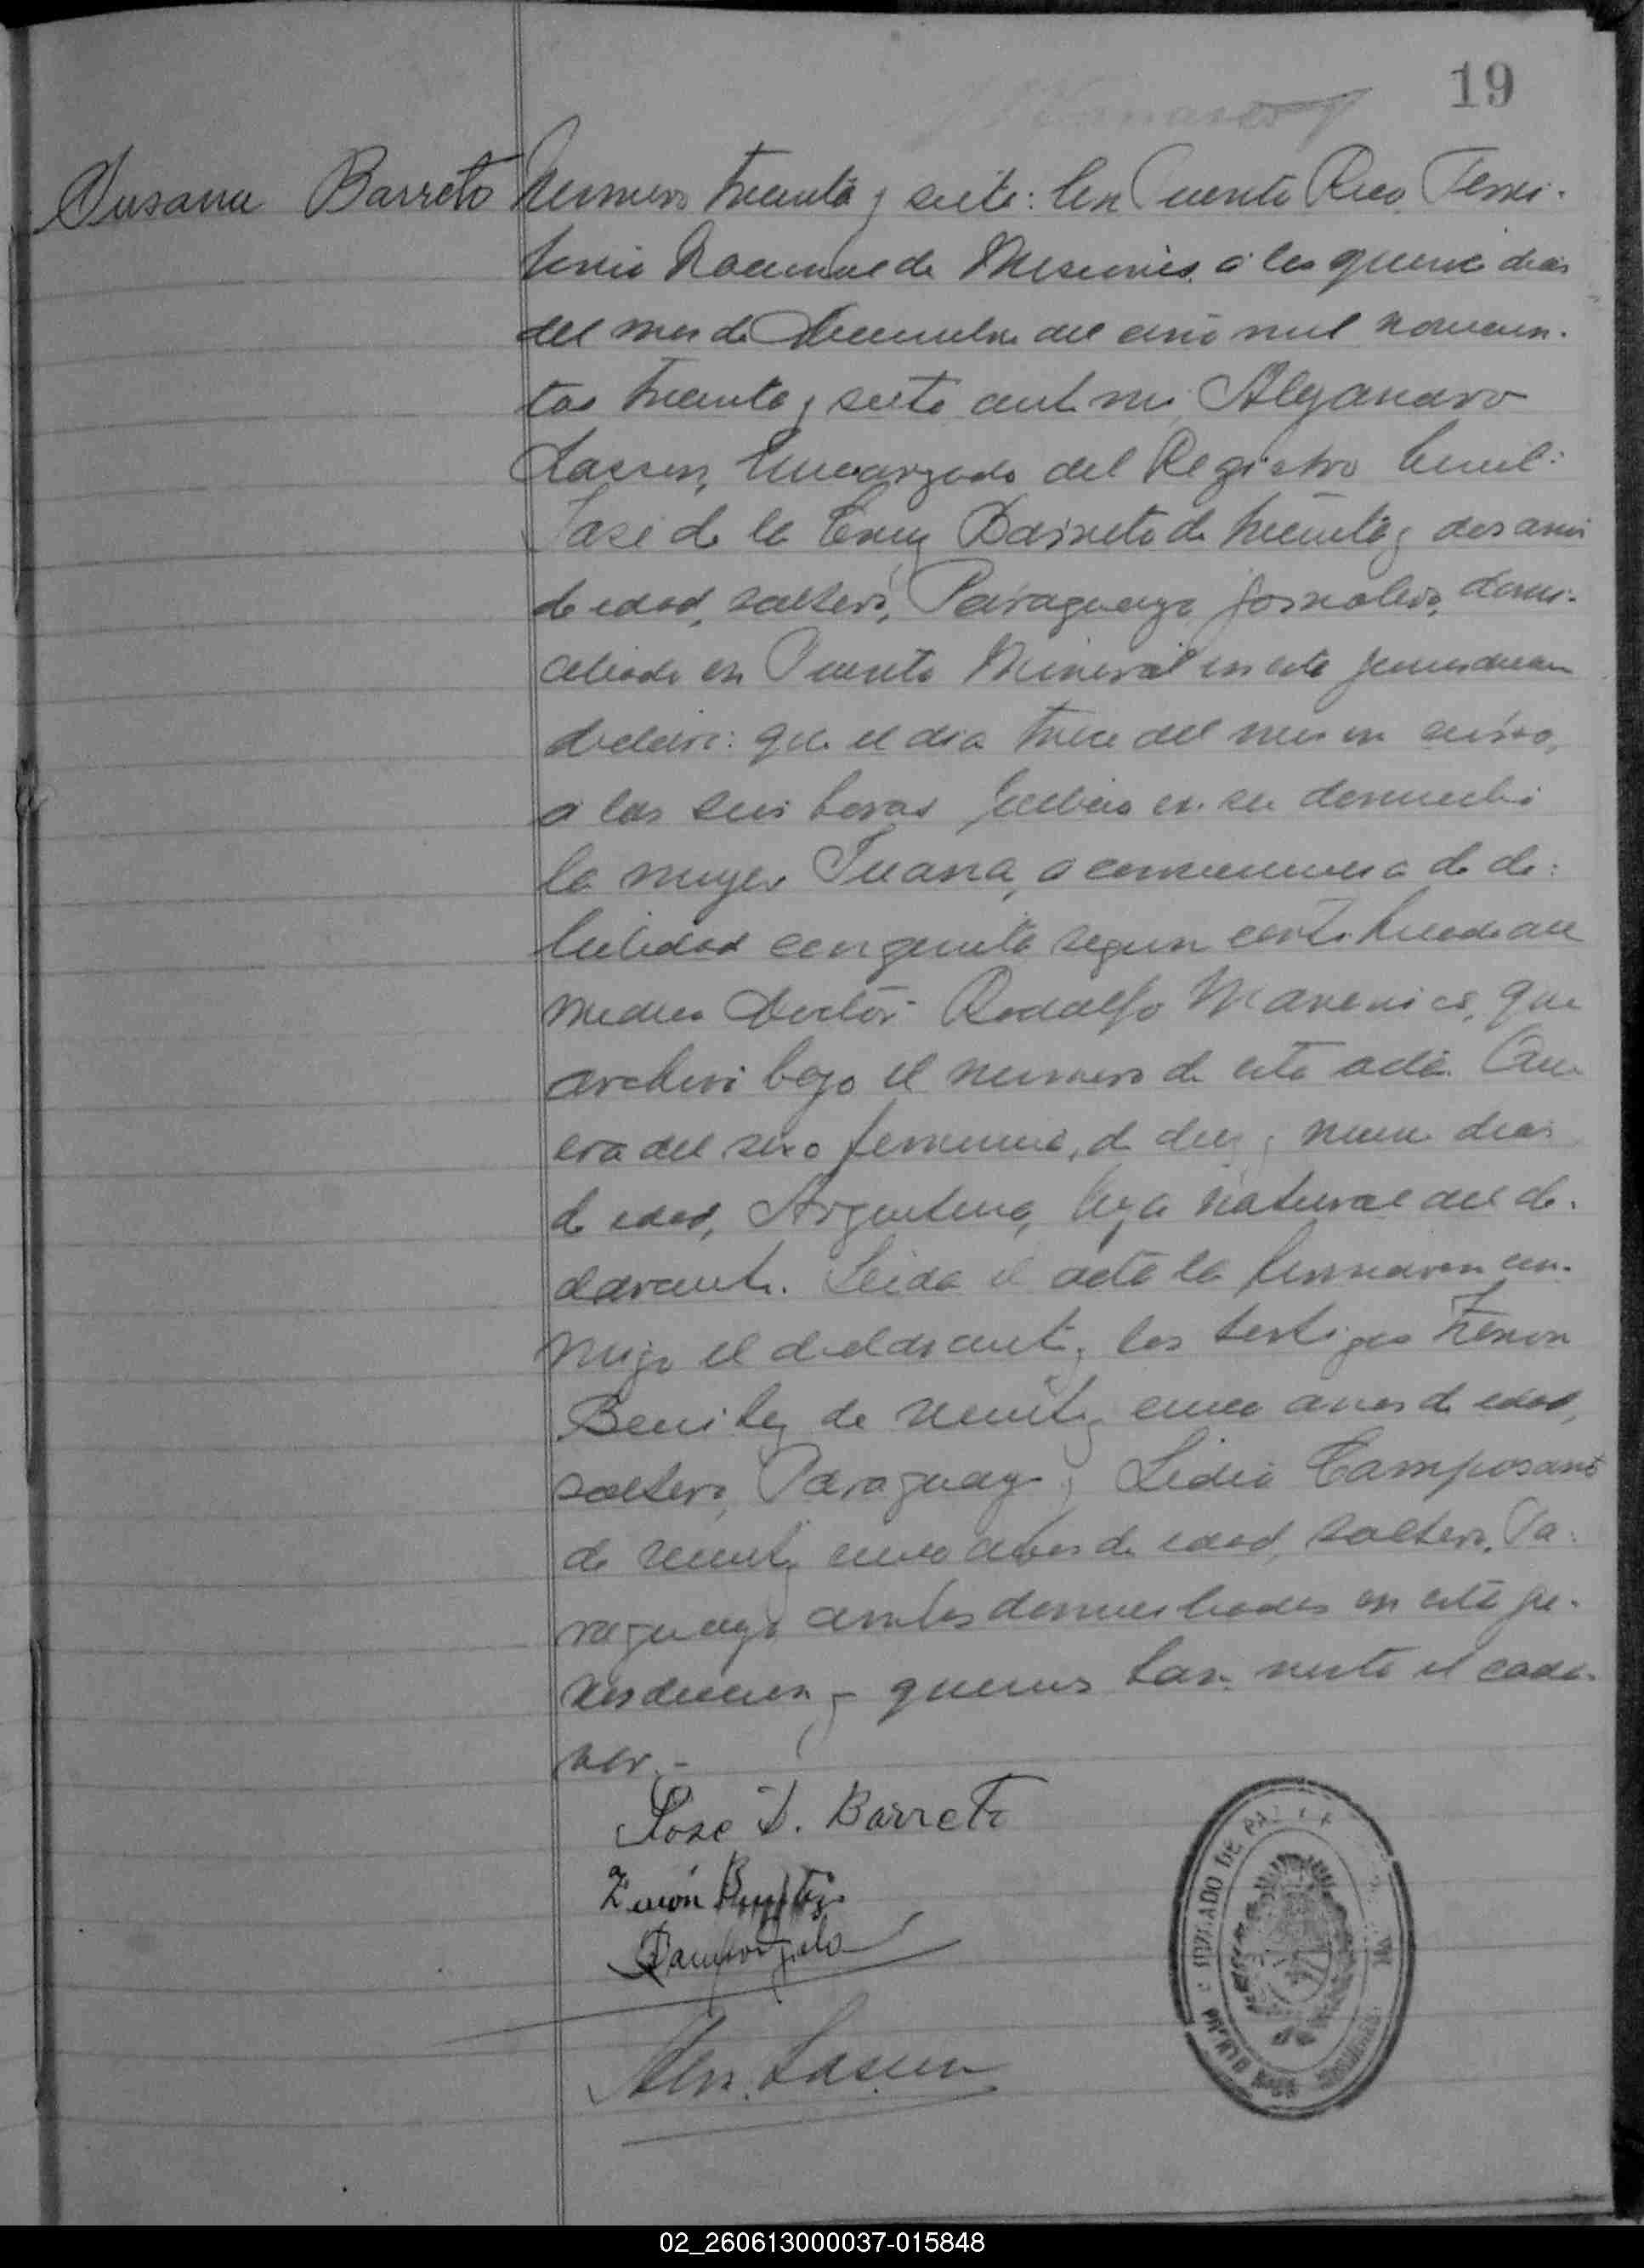 19
Susana Barreto
Numero treinta y siete: En Puerto Rico, Terri-
torio Nacional de Misiones, a los quince dias
del mes de Diciembre del año mil novecien-
tos treinta y siete ante mi Alejandro
Lassen, Encargado del Registro Civil:
José de la Cruz Barreto de treinta y dos años
de edad, soltero, Paraguayo jornalero, domi-
ciliado en Puerto Mineral en esta jurisdiccion
declaró: que el dia trece del mes en curso,
a las seis horas falleció en su domicilio
la mujer Juana, a consecuencia de de-
bilidad congenita segun certificado del
medico Doctor Rodolfo que
archivo bajo el numero de esta acta. Que
era del sexo femenino, de diez y nueve dias
de edad, Argentina, hija natural del de-
clarante. Leida el acta la firmaron con-
migo el declarante y los testigos Zenon
Benitez de veinte y cinco años de edad,
soltero, Paraguayo y Lidio Camposano
de veinte y cinco años de edad, soltero, Pa-
raguayo ambos domiciliados en esta ju-
risdiccion y quienes han visto el cada-
ver.-
José D. Barreto
Zenón Benitez
Alej. Lassen
JUZGADO DE PAZ
PUERTO RICO MISIONES
02_260613000037-015848